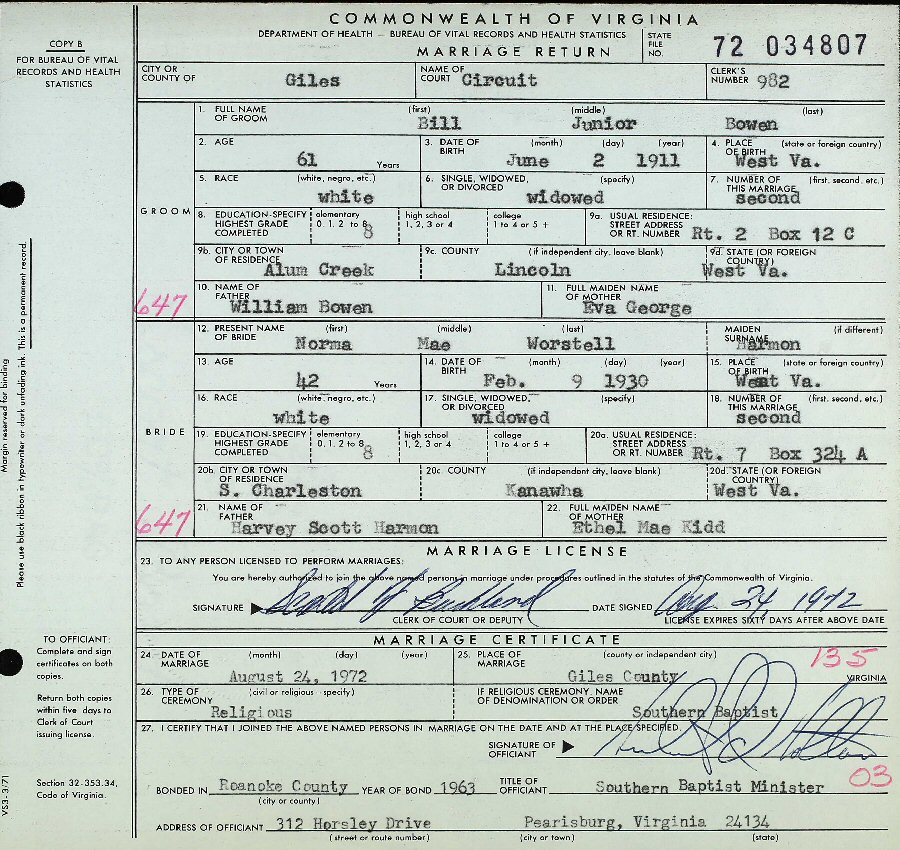 COMMONWEALTH OF VIRGINIA
DEPARTMENT OF HEALTH — BUREAU OF VITAL RECORDS AND HEALTH STATISTICS
MARRIAGE RETURN
STATE FILE NO. 72 034807
COPY B
FOR BUREAU OF VITAL
RECORDS AND HEALTH
STATISTICS
CITY OR COUNTY OF Giles NAME OF COURT Circuit CLERK'S NUMBER 982
GROOM
1. FULL NAME OF GROOM (first) Bill (middle) Junior (last) Bowen
2. AGE 61 Years 3. DATE OF BIRTH (month) (day) (year) June 2 1911 4. PLACE OF BIRTH (state or foreign country) West Va.
5. RACE (white, negro, etc.) white 6. SINGLE, WIDOWED, OR DIVORCED (specify) widowed 7. NUMBER OF THIS MARRIAGE (first, second, etc.) second
8. EDUCATION-SPECIFY HIGHEST GRADE COMPLETED elementary 0, 1, 2 to 8 8 high school 1, 2, 3 or 4 college 1 to 4 or 5 + 9a. USUAL RESIDENCE: STREET ADDRESS OR RT. NUMBER Rt. 2 Box 12 C
9b. CITY OR TOWN OF RESIDENCE Alum Creek 9c. COUNTY (if independent city, leave blank) Lincoln 9d. STATE (OR FOREIGN COUNTRY) West Va.
647
10. NAME OF FATHER William Bowen 11. FULL MAIDEN NAME OF MOTHER Eva George
BRIDE
12. PRESENT NAME OF BRIDE (first) Norma (middle) Mae (last) Worstell MAIDEN SURNAME (if different) Harmon
13. AGE 42 Years 14. DATE OF BIRTH (month) (day) (year) Feb. 9 1930 15. PLACE OF BIRTH (state or foreign country) West Va.
16. RACE (white, negro, etc.) white 17. SINGLE, WIDOWED, OR DIVORCED (specify) widowed 18. NUMBER OF THIS MARRIAGE (first, second, etc.) second
19. EDUCATION-SPECIFY HIGHEST GRADE COMPLETED elementary 0, 1, 2 to 8 8 high school 1, 2, 3 or 4 college 1 to 4 or 5 + 20a. USUAL RESIDENCE: STREET ADDRESS OR RT. NUMBER Rt. 7 Box 324 A
20b. CITY OR TOWN OF RESIDENCE S. Charleston 20c. COUNTY (if independent city, leave blank) Kanawha 20d. STATE (OR FOREIGN COUNTRY) West Va.
647
21. NAME OF FATHER Harvey Scott Harmon 22. FULL MAIDEN NAME OF MOTHER Ethel Mae Kidd
MARRIAGE LICENSE
23. TO ANY PERSON LICENSED TO PERFORM MARRIAGES:
You are hereby authorized to join the above named persons in marriage under procedures outlined in the statutes of the Commonwealth of Virginia.
SIGNATURE DATE SIGNED Aug. 24, 1972
CLERK OF COURT OR DEPUTY LICENSE EXPIRES SIXTY DAYS AFTER ABOVE DATE
MARRIAGE CERTIFICATE
24. DATE OF MARRIAGE (month) (day) (year) August 24, 1972 25. PLACE OF MARRIAGE (county or independent city) Giles County VIRGINIA
135
26. TYPE OF CEREMONY (civil or religious - specify) Religious IF RELIGIOUS CEREMONY, NAME OF DENOMINATION OR ORDER Southern Baptist
27. I CERTIFY THAT I JOINED THE ABOVE NAMED PERSONS IN MARRIAGE ON THE DATE AND AT THE PLACE SPECIFIED.
SIGNATURE OF OFFICIANT
03
BONDED IN Roanoke County (city or county) YEAR OF BOND 1963 TITLE OF OFFICIANT Southern Baptist Minister
ADDRESS OF OFFICIANT 312 Horsley Drive Pearisburg, Virginia 24134
(street or route number) (city or town) (state)
Margin reserved for binding
Please use black ribbon in typewriter or dark unfading ink. This is a permanent record.
TO OFFICIANT:
Complete and sign
certificates on both
copies.
Return both copies
within five days to
Clerk of Court
issuing license.
Section 32-353.34,
Code of Virginia.
VS3-3/71